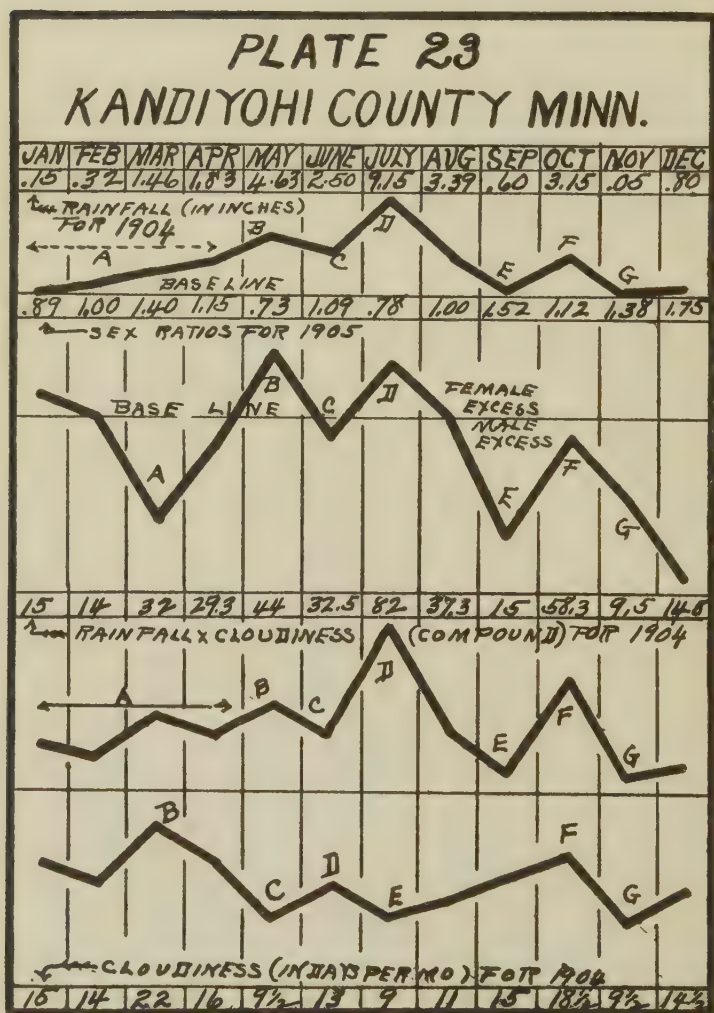 PLATE 23
KANDIYOHI COUNTY MINN.
JAN FEB MAR APR MAY JUNE JULY AUG SEP OCT NOV DEC
.15 .32 1.46 1.83 4.63 2.50 9.15 3.39 .60 3.15 .05 .80
RAINFALL (IN INCHES)
FOR 1904
A B C D E F G
BASE LINE
.89 1.00 1.40 1.15 .73 1.09 .78 1.00 1.52 1.12 1.38 1.75
SEX RATIOS FOR 1905
BASE LINE
FEMALE
EXCESS
MALE
EXCESS
A B C D E F G
15 14 32 29.3 44 32.5 82 37.3 15 58.3 9.5 14.8
RAINFALL X CLOUDINESS (COMPOUND) FOR 1904
A B C D E F G
B C D E F G
CLOUDINESS (IN DAYS PER MO) FOR 1904
15 14 22 16 9½ 13 9 11 15 18½ 9½ 14½